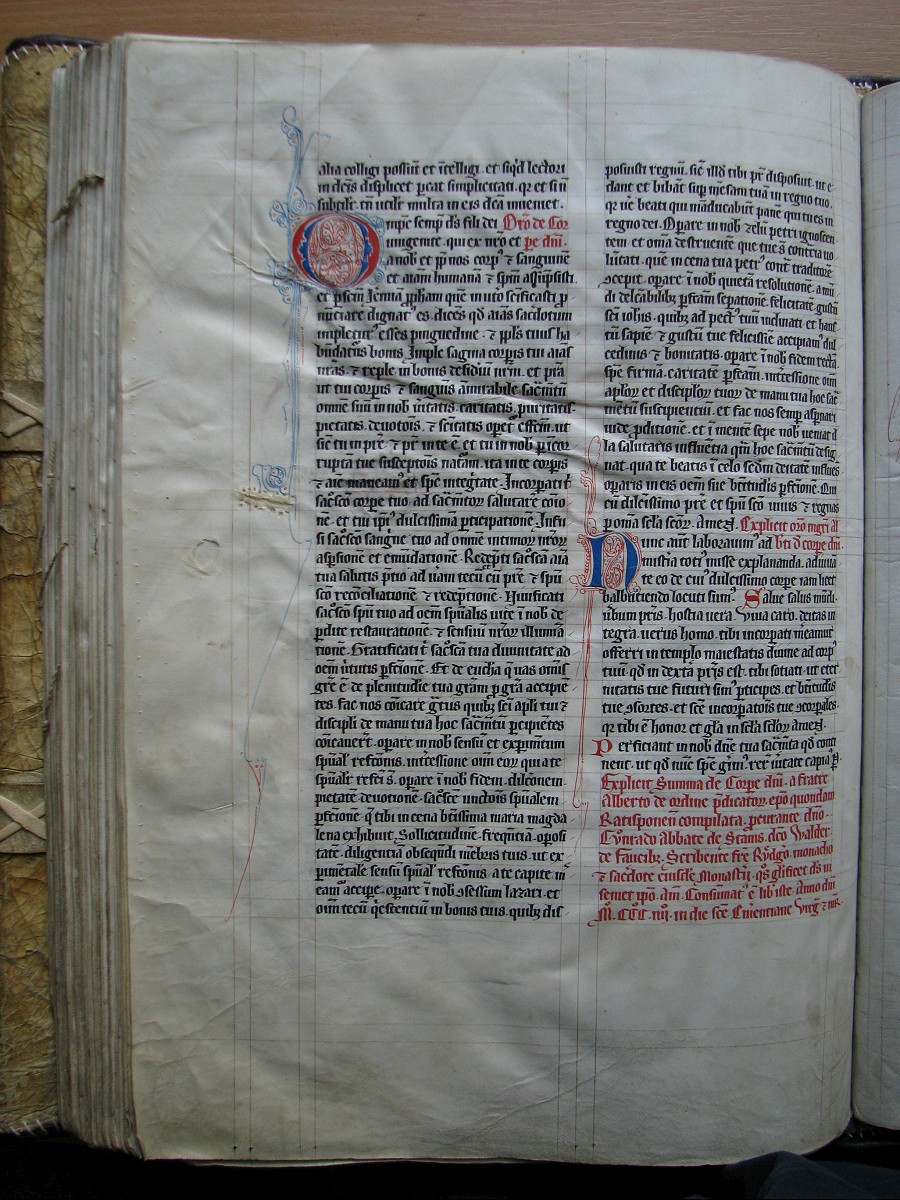 alia colligi possūt et ītelligi. et siqd lectori
in deīs displicet pcat simplicitati. qr et si ñ
subtilr. tñ utilr multa in eis dēa inueniet.
Omps semp ds fili dei Orō de Cor
ungenite. qui ex nro et pe dni.
a nob et pp nos corp⁹ ⁊ sanguinē
et aiam humanā ⁊ spm assūpsisti.
et psctm Jemiā ppham quē in uto scificasti p
nūciare dignat⁹ es. dicēs qd aias sacdotum
impletur⁹ esses pinguedine. ⁊ pplis tuus ha
būdatus bonis. Imple sagina corpis tui aias
nras. ⁊ reple in bonis desidiū nrm. et prā
ut tui corpis ⁊ sanguis āmirabile sacmtū
omnē sūm in nob ūitatis. caritatis. puritatis.
pietatis. deuotōis. ⁊ scitatis opet effcm. ut
sic tu in pre. ⁊ pr in te ē. et tu in nob p icor
ruptā tue susceptois natam. ita in te corpis
⁊ aie maneam⁹ et spc integtate. Incorpati
sacsco corpe tuo. ad sacmtoꝝ salutarē cōio
nē. et tui ipi⁹ dulcissimā pticipationē. Infu
si sacsco sangue tuo ad omnē intimoꝝ nroꝝ
aspsionē et emūdationē. Redepti sacsca aīa
tua salutis ptio ad uiam tecū cū pre ⁊ spū
sco recōciliatione ⁊ redeptione. Uiuificati
sacsco spū tuo ad oem spūalis uite ī nob de
pdite restauratione. ⁊ sensuū nroꝝ illumia
tionē. Beatificati ī sacsca tua diuinitate ad
oem ūtutis pfctionē. Et de eucha q nas omis
gre ē de plenitudie tua gram p gra accipiē
tes. fac nos cōicare gtus quibz sci apli tui ⁊
discipli de manu tua hoc sacmtū pcipiētes
cōicauert. opare in nob sensū et expimtum
spūal refctōnis. intcessione oim eoꝝ qui a te
spūalr refci s. opare ī nob fidem. dilctōem.
pietatē. deuotionē. sacsce unctōis spūalem
pfctionē. q tibi in cena btissima maria magda
lena exhibuit. Sollicitudinē. freqntia. oposi
tatē. diligentiā obsequdi mēbris tuis. ut ex
pimetalē sensū spūal refctōnis. a te capite in
eam⁹ accipe. opare ī nob ꝯsessum lazari. et
oim tecū qescentiū in bonis tuis. quibz dis
posuisti regnū. sic illd tibi pr disposuit. ut e
dant et bibāt sup mēsam tuā in regno tuo.
qr ue beati qui māducabūt panē qui tu es in
regno dei. Opare in nob zelū petri ignoscen
tem et omia destruentē que tue s contraria uo
lūtati. que in cena tua petr⁹ cont traditorē
ꝯcepit. opare ī nob quietā resolutionē. a mū
di delcābilibz pfctam sepationē. felicitatē gustū
sci iohis. quibz ad pect⁹ tuū inclinati et haust
tū sapiē ⁊ gustū tue felicissie accipiam⁹ dul
cedinis ⁊ bonitatis. opare ī nob fidem rectā.
spē firmā. caritatē pfctam. intcessione oim
aploꝝ et discipuloꝝ tuoꝝ de manu tua hoc sac
metū suscipientiū. et fac nos semp aspnari
iude pditionē. et ī mente sepe nob ueniat il
la salutaris influētia qm hoc sacmtū desig
nat. qua te beatis ī celo sedm deitatē influes
oparis in eis oem sue btitudis pfctionē. Qui
cū dilcissimo pre et spū sco uiuis ⁊ regnas
p omia scla scloꝝ. Amen. Explicit orō mgri al
Nunc aut laborauim⁹ ad bti d corpe dni.
mistria toti⁹ misse explananda. adiuua
te eo de cui⁹ dulcissimo corpe iam hec
balbuciendo locuti sum⁹. Salue salus mūdi.
ūbum pris. hostia uera. Viua caro. deitas in
tegra. uerus homo. tibi incorpati meamur
offerri in templo maiestatis diuine ad corp⁹
tuū. qd in dextra pris est. tibi sotiati. ut eter
nitatis tue futuri sim⁹ pticipes. et btitudis
tue ꝯsortes. et sce incorpatōis tue ꝯcorpales.
qr tibi ē honor et gla in scla scloꝝ amen.
Perficiant in nob dne tua sacmta qd conti
nent. ut qd nūc spē gim⁹. rer ūitate capiam⁹.
Explicit Summa de Corpe dni. a fratre
Alberto de ordine pdicatoꝝ. epo quondam
Ratisponen compilata. pcurante dno.
Cunrado Abbate de Stams. dco Walder.
de Faucibz. Scribente fre Rudgo. monacho
⁊ sacdote eiusdē Monastii. qs glificet ds in
semet ipo. am. Consumat⁹ ē lib iste. Anno dni
M. CCC. iiij. in die sce Emerentiane Virg ⁊ mr.